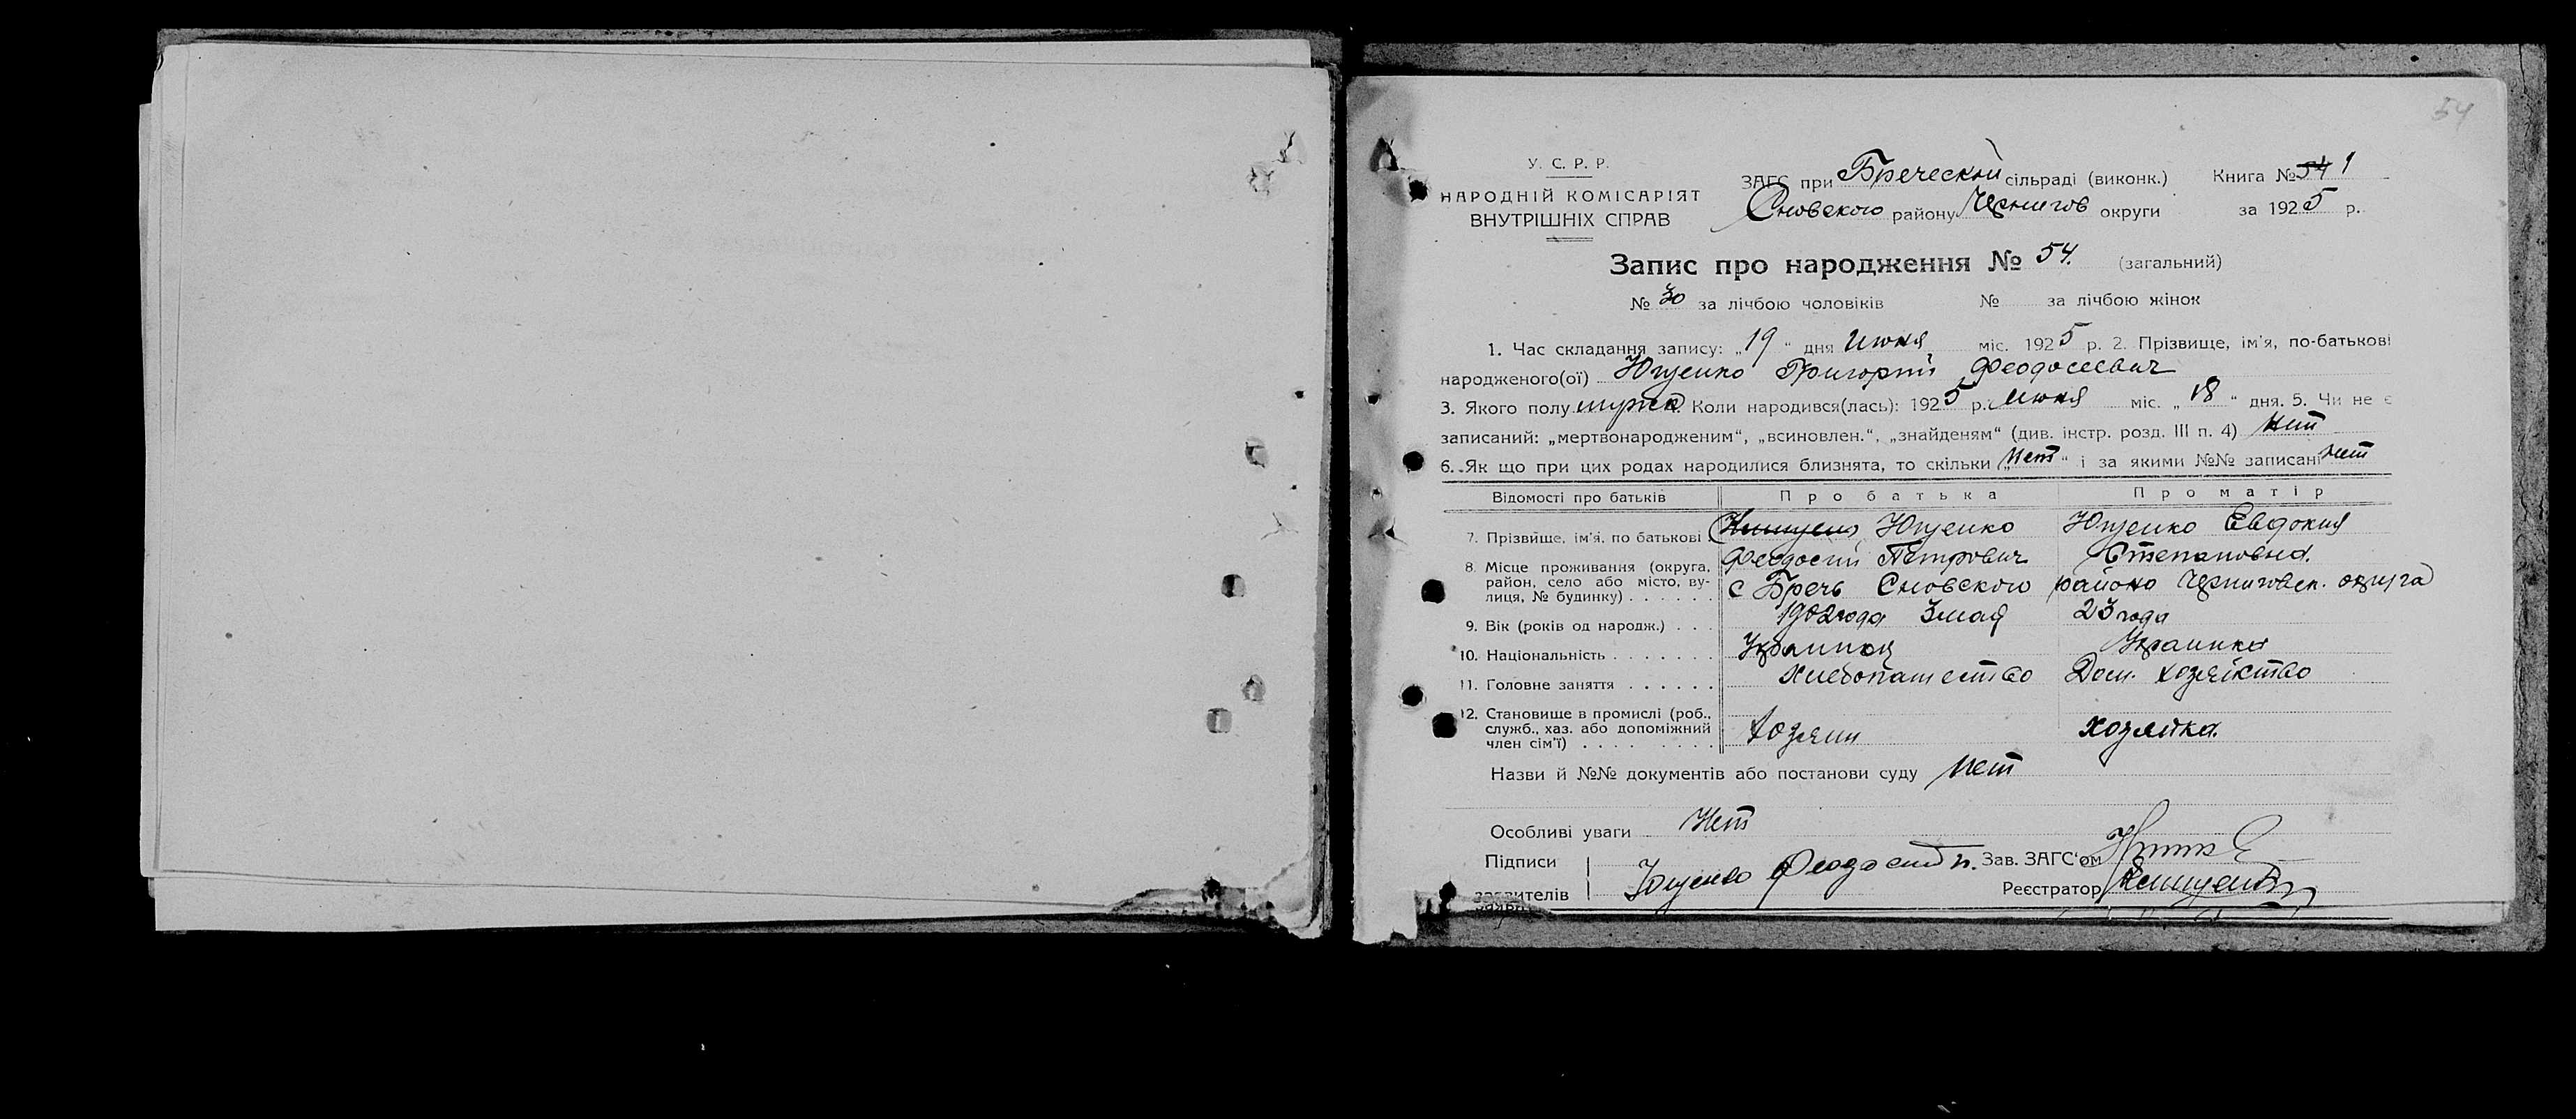 54
У. С. Р. Р.
НАРОДНІЙ КОМІСАРІЯТ
ВНУТРІШНІХ СПРАВ
ЗАГС при Бреческой сільраді (виконк.) Книга № 54 1
Сновского району Чернигов округи за 1925 р.
Запис про народження № 54. (загальний)
№ 30 за лічбою чоловіків № за лічбою жінок
1. Час складання запису: „19“ дня Июня міс. 1925 р. 2. Прізвище, ім'я, по-батькові
народженого(ої) Ющенко Григорий Феодосеевич
3. Якого полу мужск. Коли народився(лась): 1925 р. Июня міс. „18“ дня. 5. Чи не є
записаний: „мертвонародженим“, „всиновлен.“, „знайденям“ (див. інстр. розд. III п. 4) Нет
6. Як що при цих родах народилися близнята, то скільки „Нет“ і за якими №№ записані нет
Відомості про батьків Про батька Про матір
7. Прізвище, ім'я, по батькові Ющенко Ющенко Евдокия
Феодосий Петрович Степановна.
8. Місце проживання (округа,
район, село або місто, ву-
лиця, № будинку) . . . . . . с Бречь Сновского района Черниговск. округа
9. Вік (років од народж.) . . . 1902 года 3 мая 23 года
10. Національність . . . . . . . Украинец Украинка
11. Головне заняття . . . . . . Хлебопашество Дом. хозяйство
12. Становище в промислі (роб.,
служб., хаз. або допоміжний
член сім'ї) . . . . . . . . Хозяин хозяйка.
Назви й №№ документів або постанови суду Нет
Особливі уваги Нет
Підписи
заявителів Ющенко Феодосий П. Зав. ЗАГС'ом
Реєстратор